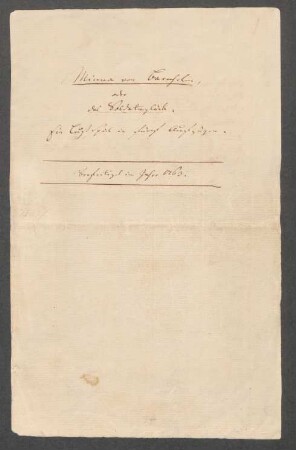 Minna von Barnhelm,
oder
das Soldatenglück.
Ein Lustspiel in fünf Aufzügen.
Verfertiget im Jahre 1763.